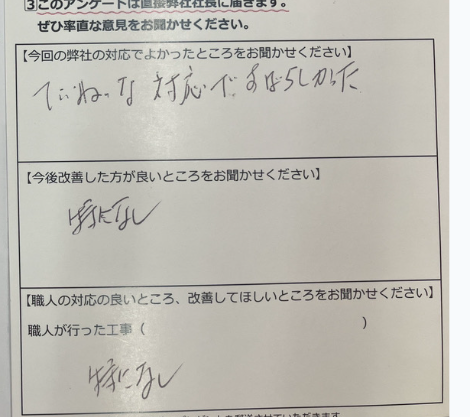 ③このアンケートは直接弊社社長に届きます。
ぜひ率直な意見をお聞かせください。
【今回の弊社の対応でよかったところをお聞かせください】
ていねいな 対応で すばらしかった
【今後改善した方が良いところをお聞かせください】
特になし
【職人の対応の良いところ、改善してほしいところをお聞かせください】
職人が行った工事（　　　　　　　　　　）
特になし